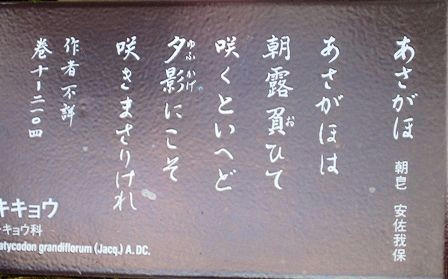 あさがほ 朝皃 安佐我保
あさがほは
朝露負ひて
咲くといへど
夕影にこそ
咲きまさりけれ
作者不詳
巻十-二一〇四
キキョウ
キキョウ科
atycodon grandiflorum (Jacq.) A. DC.
お
ゆふかげ